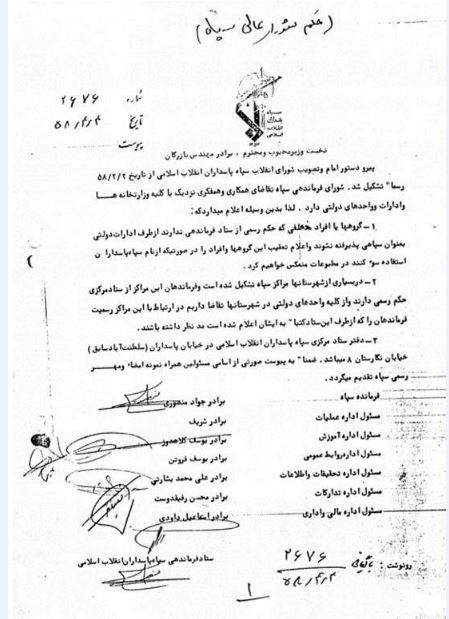 (حکم شورای عالی سپاه)
شماره ۲۶۷۶
تاریخ ۵۸/۴/۴
پیوست
سپاه
پاسداران
انقلاب
اسلامی
نخست وزیر محبوب و محترم ، برادر مهندس بازرگان
پیرو دستور امام و تصویب شورای انقلاب سپاه پاسداران انقلاب اسلامی از تاریخ ۵۸/۲/۲
رسما" تشکیل شد . شورای فرماندهی سپاه تقاضای همکاری و همفکری نزدیک با کلیه وزارتخانه هـــا
وادارات وواحدهای دولتی دارد . لذا بدین وسیله اعلام میدارد که :
۱ ــ گروهها یا افراد مختلفی که حکم رسمی از ستاد فرماندهی ندارند ازطرف ادارات دولتی
بعنوان سپاهی پذیرفته نشوند واعلام تعقیب این گروهها وافراد را در صورتیکه ازنام سپاه پاسدارا ن
استفاده سوء کنند در مطبوعات منعکس خواهیم کرد .
۲ ــ دربسیاری ازشهرستانها مراکز سپاه تشکیل شده است وفرماندهان این مراکز از ستاد مرکزی
حکم رسمی دارند واز کلیه واحدهای دولتی در شهرستانها تقاضا داریم در ارتباط با این مراکز رسمیت
فرماندهان را که ازطرف این ستاد کتبا" به ایشان اعلام شده است مد نظر داشته باشند .
۳ ــ دفتر ستاد مرکزی سپاه پاسداران انقلاب اسلامی در خیابان پاسداران (سلطنت آباد سابق)
خیابان نگارستان ۸ میباشد . ضمنا" به پیوست صورتی از اسامی مسئولین همراه نمونه امضاء ومهـــر
رسمی سپاه تقدیم میگردد .
فرمانده سپاه برادر جواد منصوری
مسئول اداره عملیات برادر شریف
مسئول اداره آموزش برادر یوسف کلاهدوز
مسئول اداره روابط عمومی برادر یوسف فروتن
مسئول اداره تحقیقات واطلاعات برادر علی محمد بشارتی
مسئول اداره تدارکات برادر محسن رفیقدوست
مسئول اداره مالی واداری برادر اسماعیل داودی
ستاد فرماندهی سپاه پاسداران انقلاب اسلامی
رونوشت : بایگانی ۲۶۷۶
۵۸/۴/۴
۱